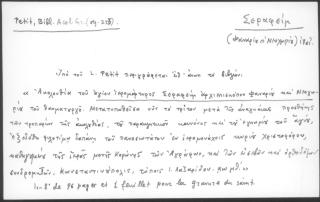 Petit, Bibl. Acol. Gr. (σ. 258).
Σεραφείμ
(Φαναρίου κ' Νεοχωρίου) ἱερομ.
Ὑπὸ τοῦ L. Petit περιγράφεται ὡς ἄνω τὸ βιβλίον:
« Ἀκολουθία τοῦ ἁγίου ἱερομάρτυρος Σεραφεὶμ ἀρχιεπισκόπου Φαναρίου καὶ Νεοχω-
ρίου τοῦ θαυματουργοῦ. Μετατυπωθεῖσα νῦν τὸ τρίτον μετὰ τῆς ἀναγκαίας προσθήκης
τῶν τῆς ἀκολουθίας, τοῦ παρακλητικοῦ κανόνος καὶ τοῦ τοῦ ἁγίου,
ἐξόδοις φιλοτίμῳ δαπάνῃ τοῦ πανοσιωτάτου ἐν ἱερομονάχοις κυρίου Χριστοφόρου,
καθηγουμένου τῆς ἱερᾶς μονῆς Κορώνης τῶν Ἀγράφων, καὶ τῶν εὐσεβῶν καὶ ὀρθοδόξων
συνδρομητῶν. Κωνσταντινούπολις, τύποις Ι. Λαζαρίδου.
In-8° de 96 pages et 1 feuillet pour la gravure du saint.